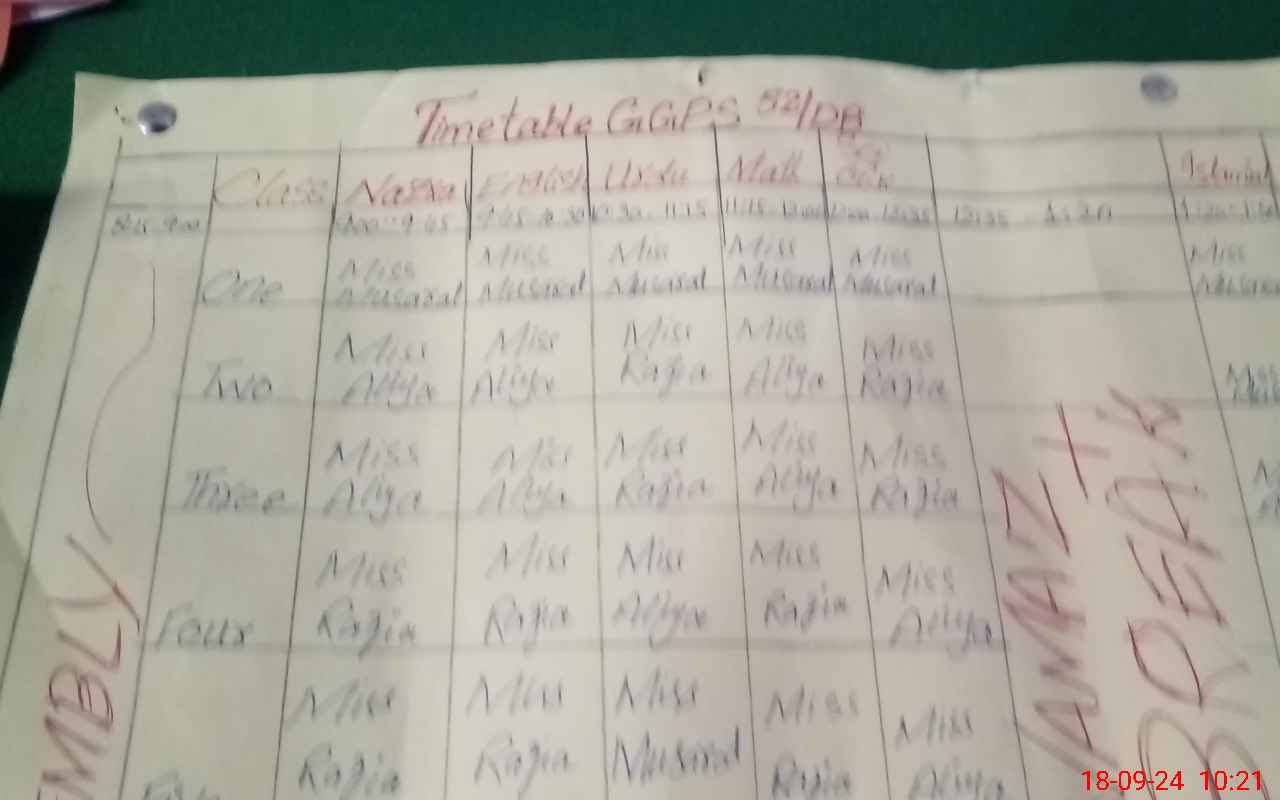 Timetable GGPS 52/DB
Class Nazra English Urdu Math
8:15 9:00 9:00 9:45 9:45 10:30 10:30 11:15 11:15 12:00 12:00 12:35 12:35 1:20
One Miss Musarat Miss Musarat Miss Musarat Miss Musarat Miss Musarat Miss
Two Miss Aliya Miss Aliya Miss Razia Miss Aliya Miss Razia
Three Miss Aliya Miss Aliya Miss Razia Miss Aliya Miss Razia
Four Miss Razia Miss Razia Miss Aliya Miss Razia Miss Aliya
Miss Razia Miss Razia Miss Musarat Miss Razia Miss Aliya
EMBLY
AMAZ +
BREAK
18-09-24 10:21